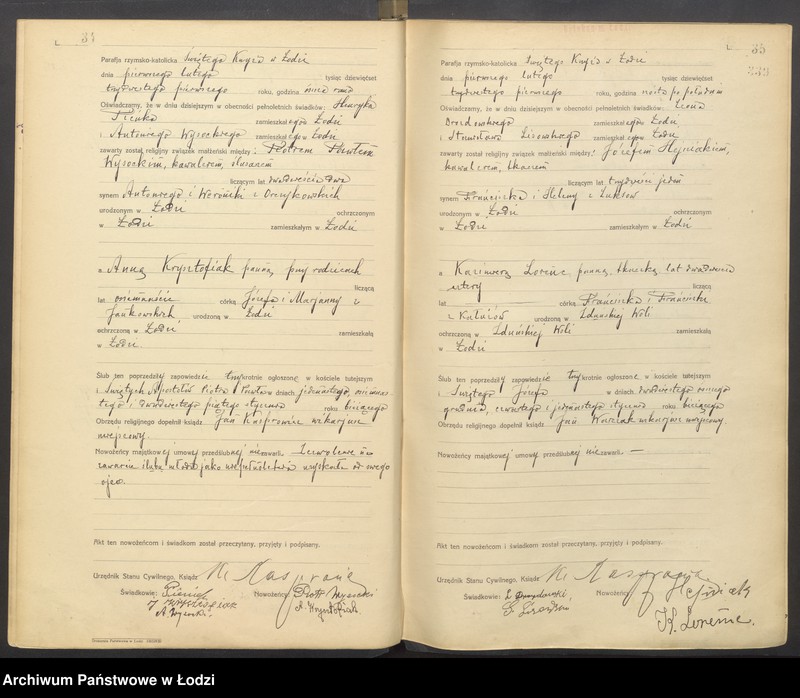 34
Parafja rzymsko-katolicka Świętego Krzyża w Łodzi
dnia pierwszego lutego tysiąc dziewięćset
trzydziestego pierwszego roku, godzina ósma rano
Oświadczamy, że w dniu dzisiejszym w obecności pełnoletnich świadków: Henryka
zamieszkałego w Łodzi
i Antoniego Wysockiego zamieszkałego w Łodzi
zawarty został religijny związek małżeński między: Piotrem Pawłem
Wysockim, kawalerem, ślusarzem
liczącym lat dwadzieścia dwa
synem Antoniego i Weroniki z
urodzonym w Łodzi ochrzczonym
w Łodzi zamieszkałym w Łodzi
a Anną Krysztofiak panną, przy rodzicach
liczącą
lat osiemnaście córką Józefa i Marjanny z
Jankowskich urodzoną w Łodzi
ochrzczoną w Łodzi zamieszkałą
w Łodzi
Ślub ten poprzedziły zapowiedzie trzykrotnie ogłoszone w kościele tutejszym
i Świętych Apostołów Piotra i Pawła w dniach jedenastego, osiemnas-
tego i dwudziestego piątego stycznia roku bieżącego
Obrzędu religijnego dopełnił ksiądz Jan wikarjusz
miejscowy.
Nowożeńcy majątkowej umowy przedślubnej nie zawarli. Zezwolenie na
zawarcie ślubu młoda jako niepełnoletnia uzyskała od swego
ojca.
Akt ten nowożeńcom i świadkom został przeczytany, przyjęty i podpisany.
Urzędnik Stanu Cywilnego, Ksiądz
Świadkowie: Nowożeńcy: Piotr Wysocki
A. Wysocki A. Krysztofiak
35
333
Parafja rzymsko-katolicka Świętego Krzyża w Łodzi
dnia pierwszego lutego tysiąc dziewięćset
trzydziestego pierwszego roku, godzina szósta po południu
Oświadczamy, że w dniu dzisiejszym w obecności pełnoletnich świadków: Leona
zamieszkałego w Łodzi
i Stanisława zamieszkałego w Łodzi
zawarty został religijny związek małżeński między: Józefem
kawalerem, tkaczem
liczącym lat trzydzieści jeden
synem Franciszka i Heleny z
urodzonym w Łodzi ochrzczonym
w Łodzi zamieszkałym w Łodzi
a Kazimierą Lorenc panną, tkaczką, lat dwadzieścia
cztery liczącą
lat — córką Franciszka i Franciszki
z urodzoną w Zduńskiej Woli
ochrzczoną w Zduńskiej Woli zamieszkałą
w Łodzi
Ślub ten poprzedziły zapowiedzie trzykrotnie ogłoszone w kościele tutejszym
i Świętego Józefa w dniach dwudziestego ósmego
grudnia, czwartego i jedenastego stycznia roku bieżącego
Obrzędu religijnego dopełnił ksiądz Jan wikarjusz miejscowy.
Nowożeńcy majątkowej umowy przedślubnej nie zawarli. —
Akt ten nowożeńcom i świadkom został przeczytany, przyjęty i podpisany.
Urzędnik Stanu Cywilnego, Ksiądz
Świadkowie: Nowożeńcy:
K. Lorenc.
Archiwum Państwowe w Łodzi